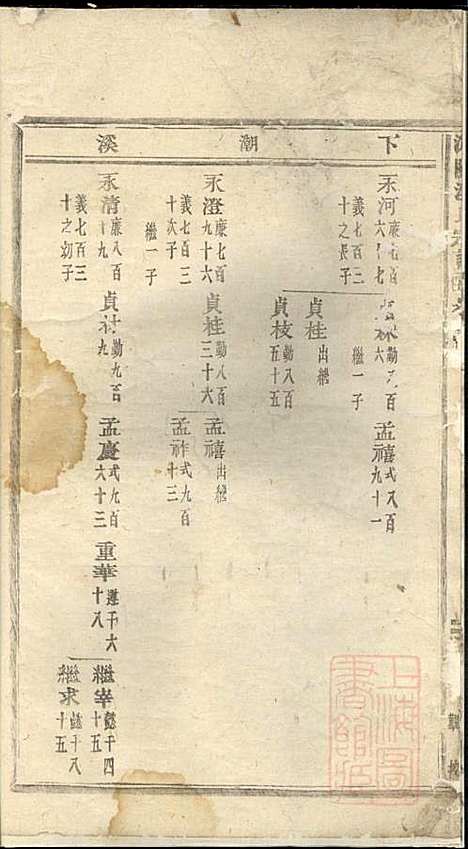 下潮溪
永河廉七百六十七
義七百三十之長子
貞林勤八百六
繼一子
孟禧式八百九十一
貞桂出繼
貞枝勤八百五十五
永澄廉七百九十六
義七百三十次子
繼一子
貞桂勤八百三十六
孟禧出繼
孟祚式九百十三
永清廉八百十九
義七百三十之幼子
貞材勤九百九
孟慶式九百六十三
重華遵千六十八
繼宰懿千四十五
繼求懿千八十五
上海圖書館藏